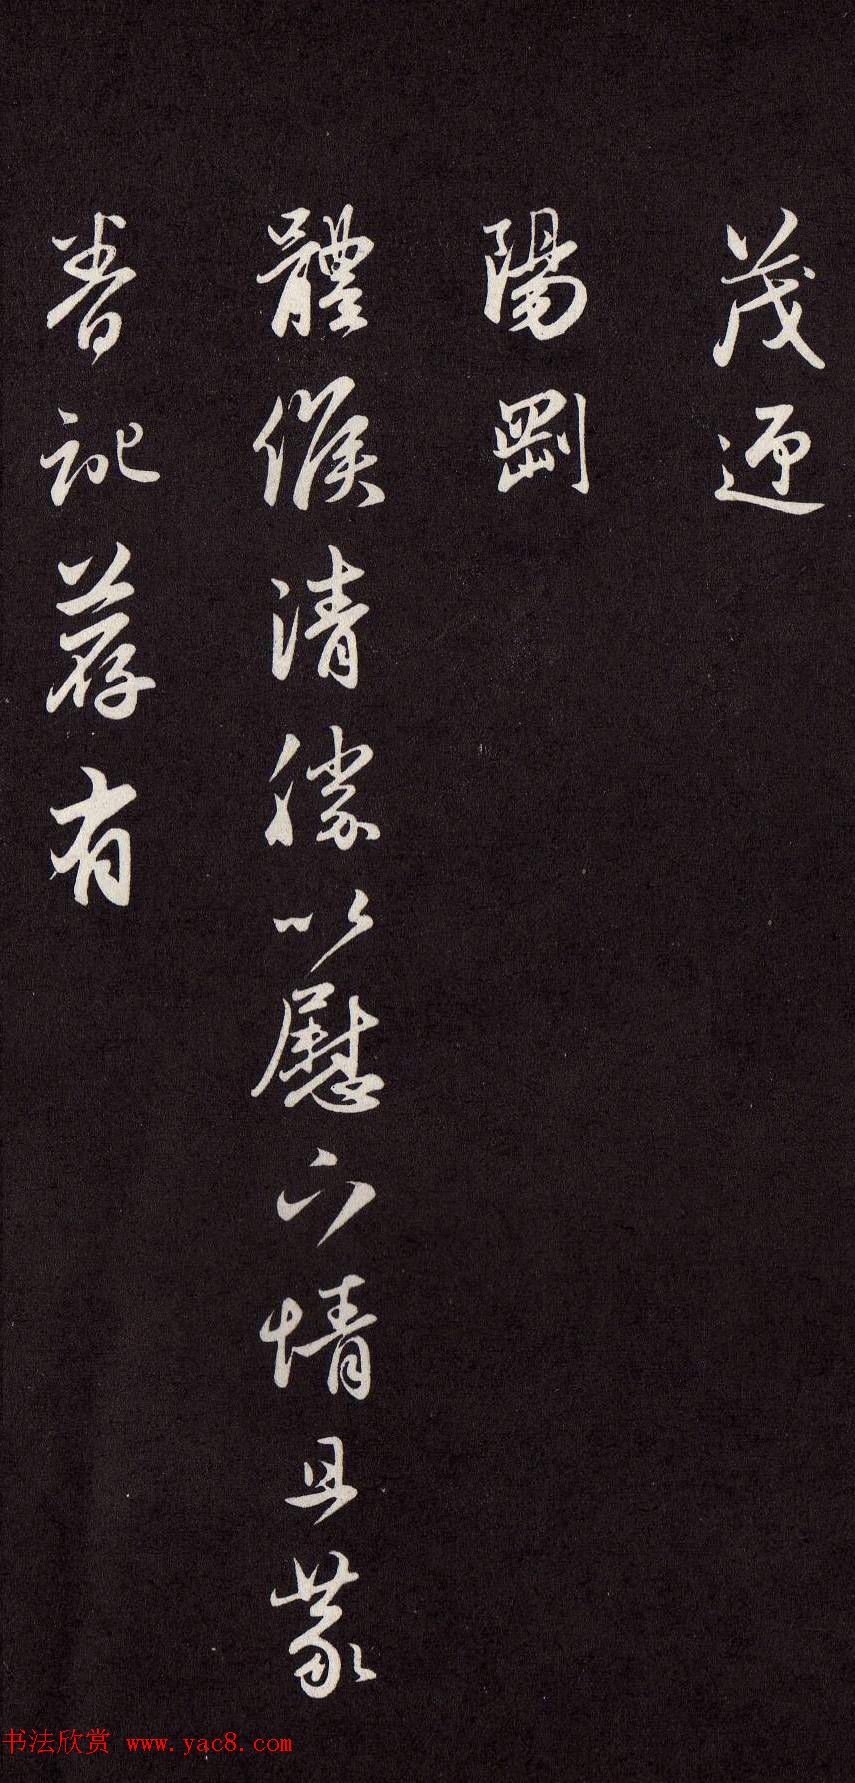 茂迎
陽剛
體候清勝以慰下情且蒙
眷記荐有
书法欣赏 www.yac8.com